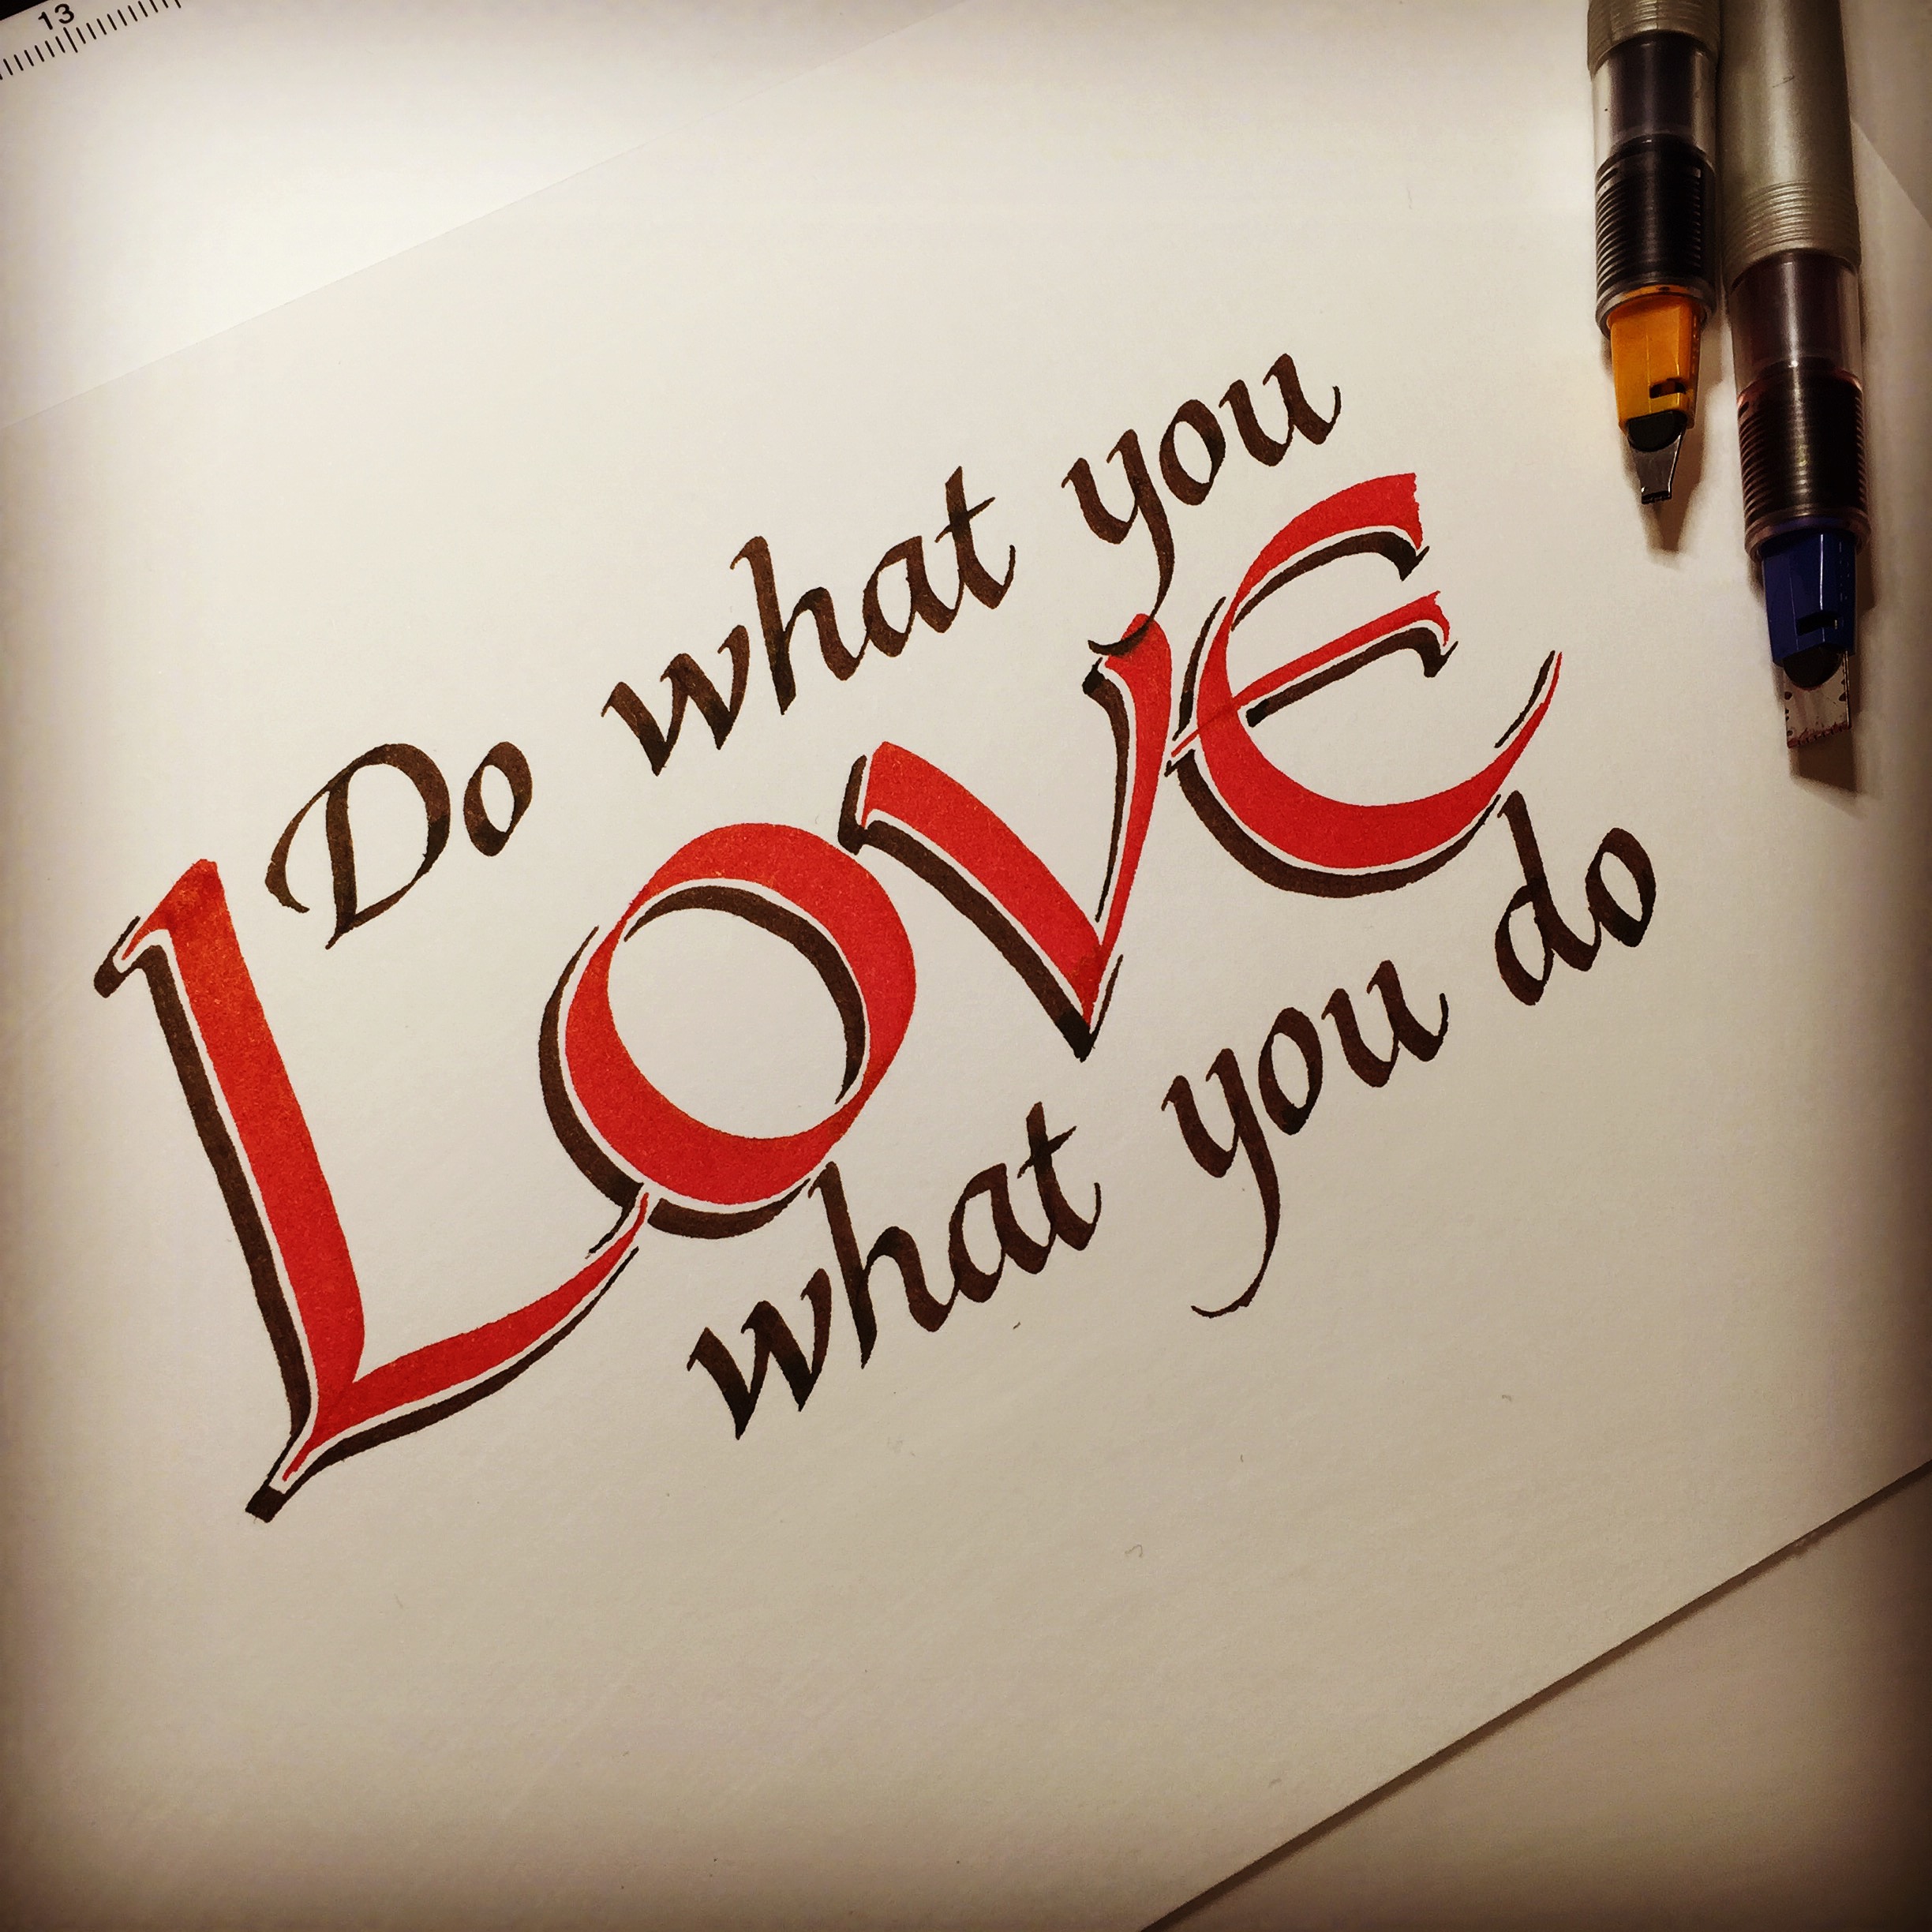 13
Do what you
LOVE
what you do